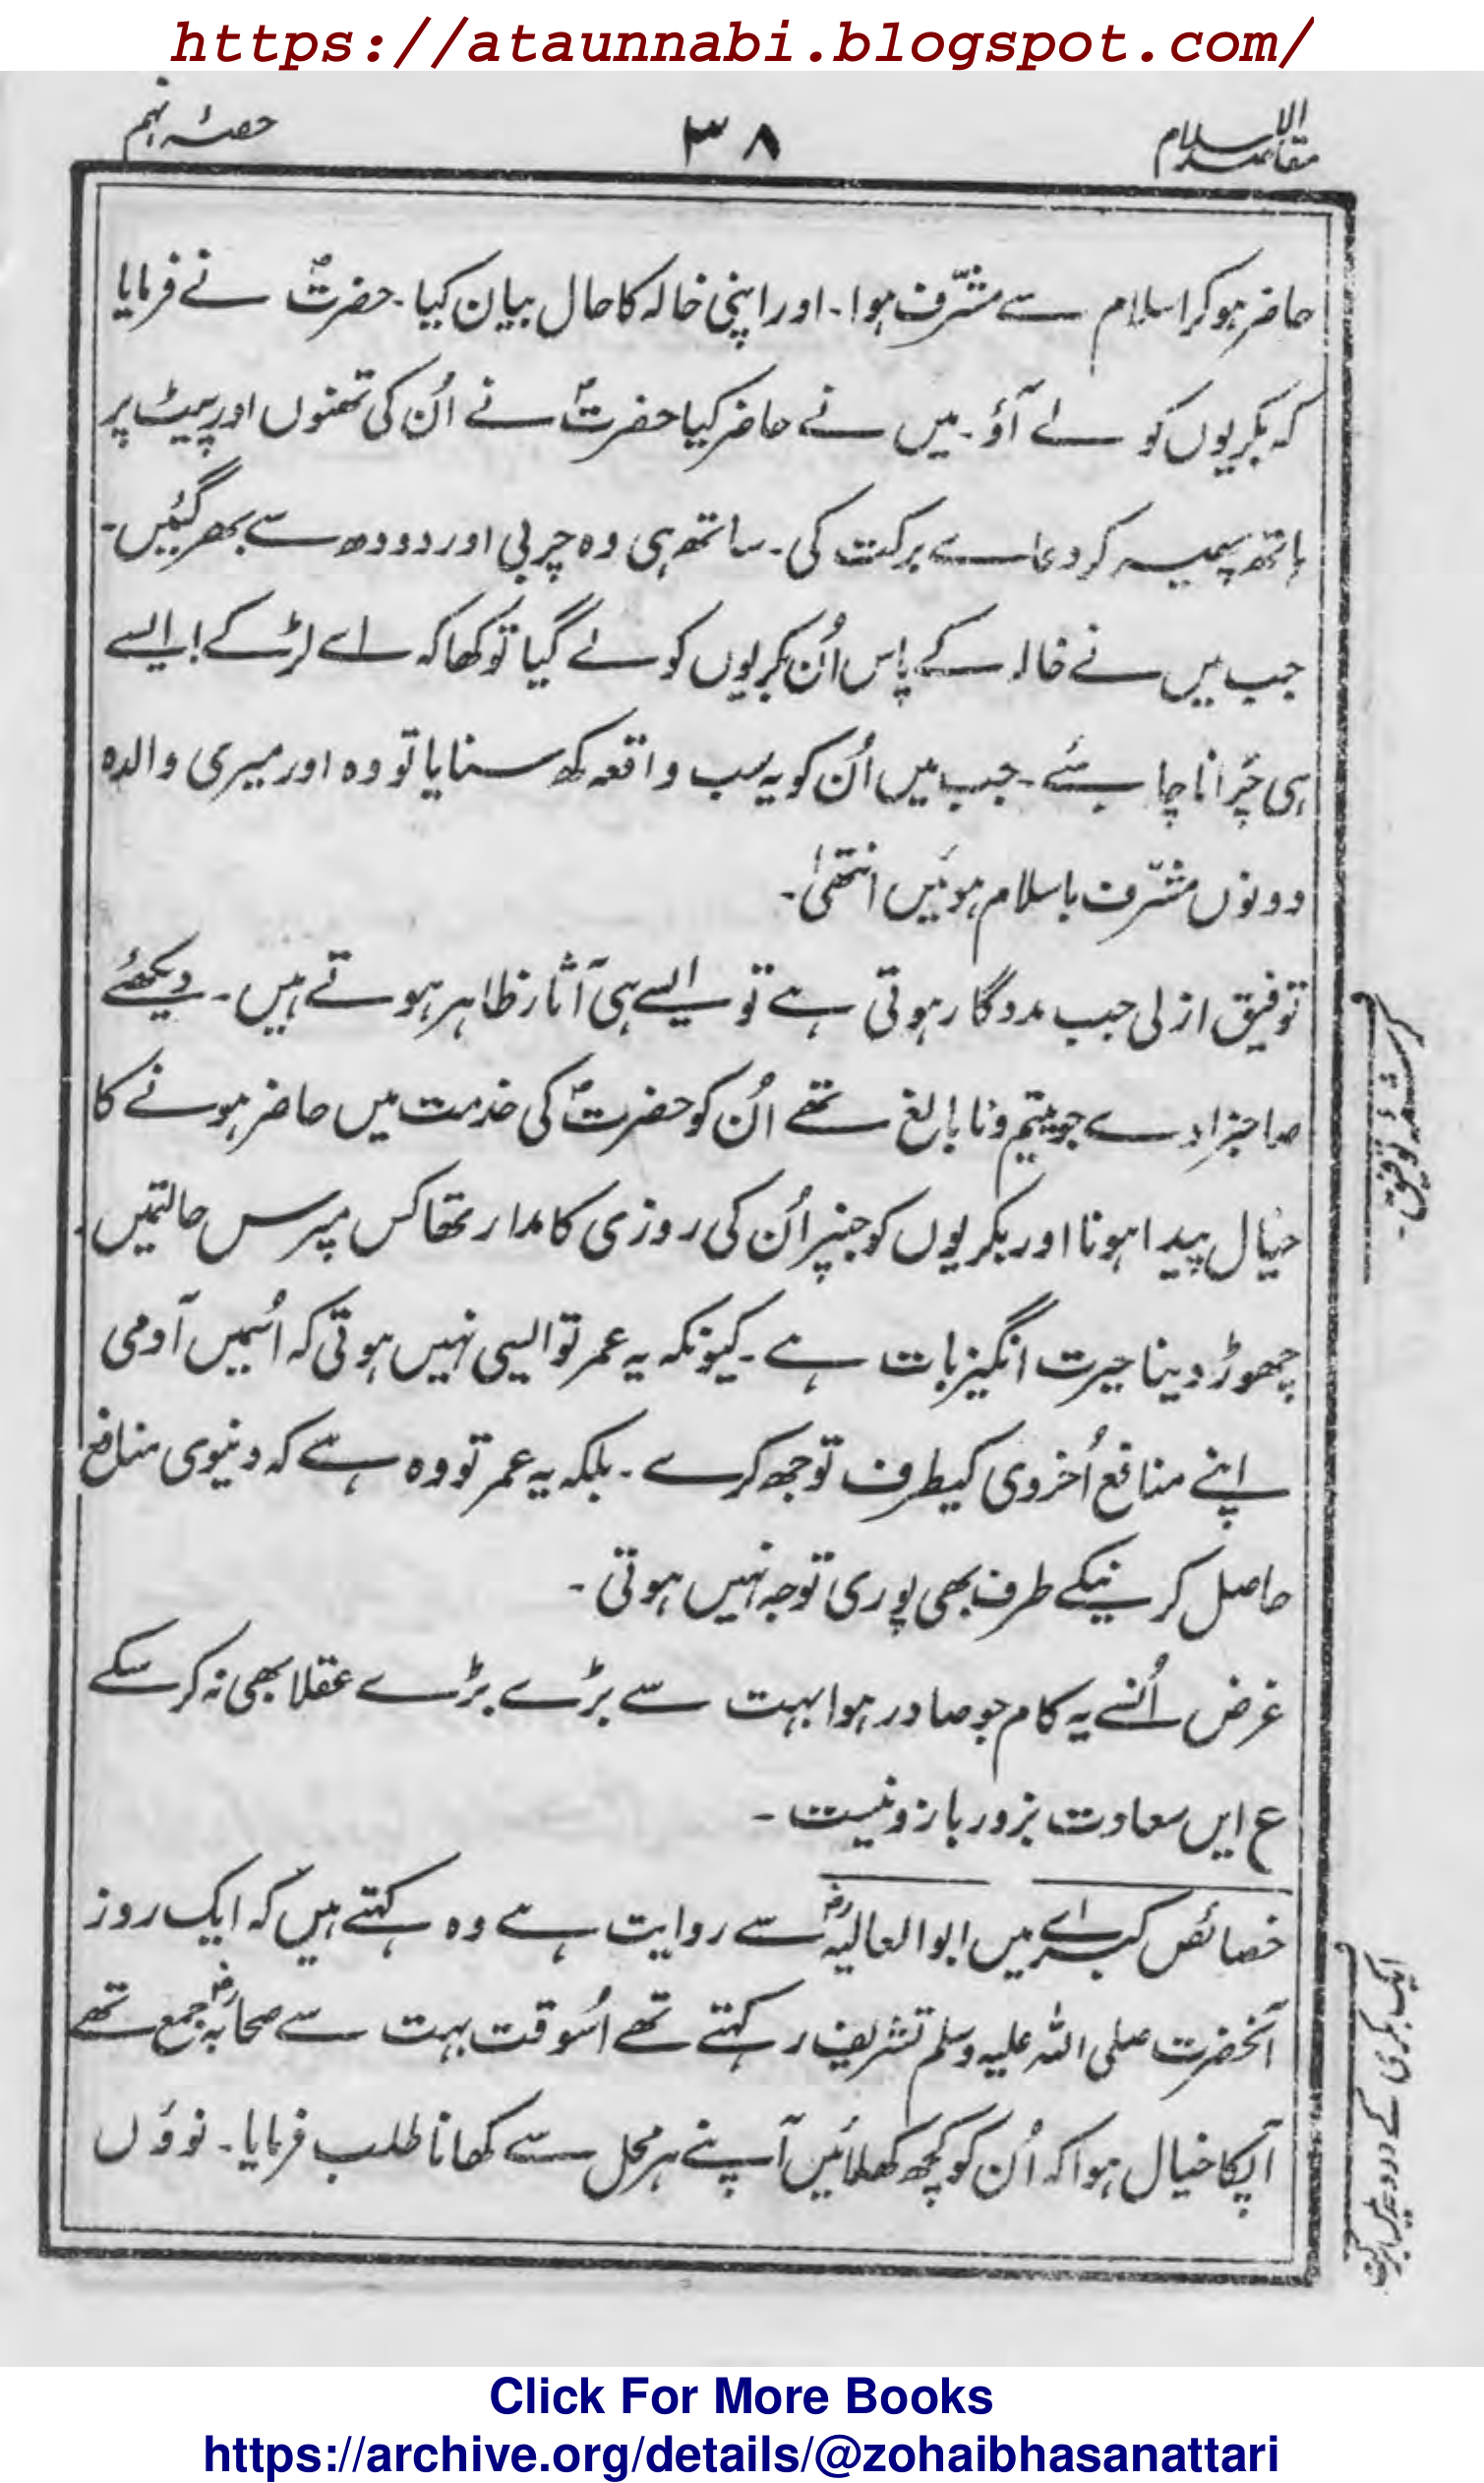 https://ataunnabi.blogspot.com/
مقاصد الاسلام
۳۸
حصۂ نہم
حاضر ہوکر اسلام سے مشرّف ہوا۔ اور اپنی خالہ کا حال بیان کیا۔ حضرتؐ نے فرمایا
کہ بکریوں کو لے آؤ۔ میں نے حاضر کیا حضرتؐ نے اُن کی تھنوں اور پیٹ پر
ہاتھ پھیر کر دعاے برکت کی۔ ساتھ ہی وہ چربی اور دودھ سے بھر گئیں۔
جب میں نے خالہ کے پاس اُن بکریوں کو لے گیا تو کھا کہ اے لڑکے! ایسے
ہی چَرانا چاہئے۔ جب میں اُن کو یہ سب واقعہ کھ سنایا تو وہ اور میری والدہ
دونوں مشرّف باسلام ہوئیں انتھیٰ۔
توفیق ازلی جب مددگار ہوتی ہے تو ایسے ہی آثار ظاہر ہوتے ہیں۔ دیکھئے
صاحبزادے جو یتیم ونابالغ تھے اُن کو حضرتؐ کی خدمت میں حاضر ہونے کا
خیال پیدا ہونا اور بکریوں کو جنپر اُن کی روزی کا مدار تھا کس مپرس حالتمیں
چھوڑ دینا حیرت انگیز بات ہے۔ کیونکہ یہ عمر تو ایسی نہیں ہوتی کہ اُسمیں آدمی
اپنے منافع اُخروی کیطرف توجھ کرے۔ بلکہ یہ عمر تو وہ ہے کہ دنیوی منافع
حاصل کرنیکے طرف بھی پوری توجہ نہیں ہوتی۔
غرض اُنسے یہ کام جو صادر ہوا بہت سے بڑے بڑے عقلا بھی نہ کر سکے
ع ایں سعادت بزور بازو نیست۔
خصائص کبرے میں ابو العالیہؓ سے روایت ہے وہ کہتے ہیں کہ ایک روز
آنحضرت صلی اللہ علیہ وسلم تشریف رکہتے تھے اُسوقت بہت سے صحابہؓ جمع تھے
آپکا خیال ہوا کہ اُن کو کچھ کھلائیں آپنے ہر محل سے کھانا طلب فرمایا۔ نوؤں
کرشمۂ توفیق۔
ایک بکری کے دودھ میں برکت
Click For More Books
https://archive.org/details/@zohaibhasanattari